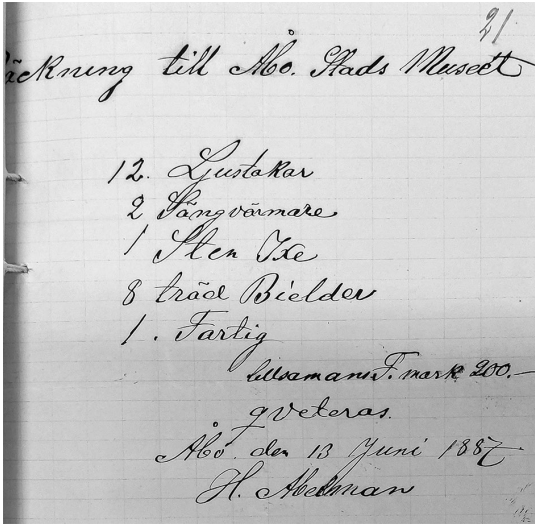 21
Räckning till Åbo. Stads Museét
12. Ljustakar
2 Sängvärmare
1 Sten Ixe
8 träd Bielder
1. Fartig
tillsamans F. mark 200.-
qveteras.
Åbo. den 13 Juni 1887
H. Abelman